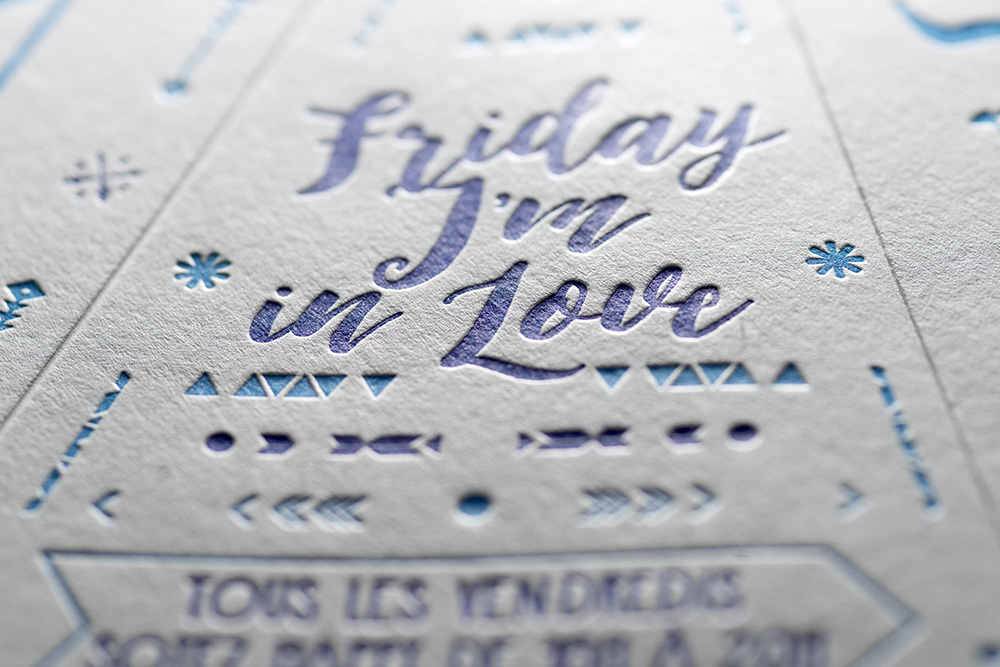 Friday
I'm
in Love
TOUS LES VENDREDIS
SOIREE DE 19H À 20H